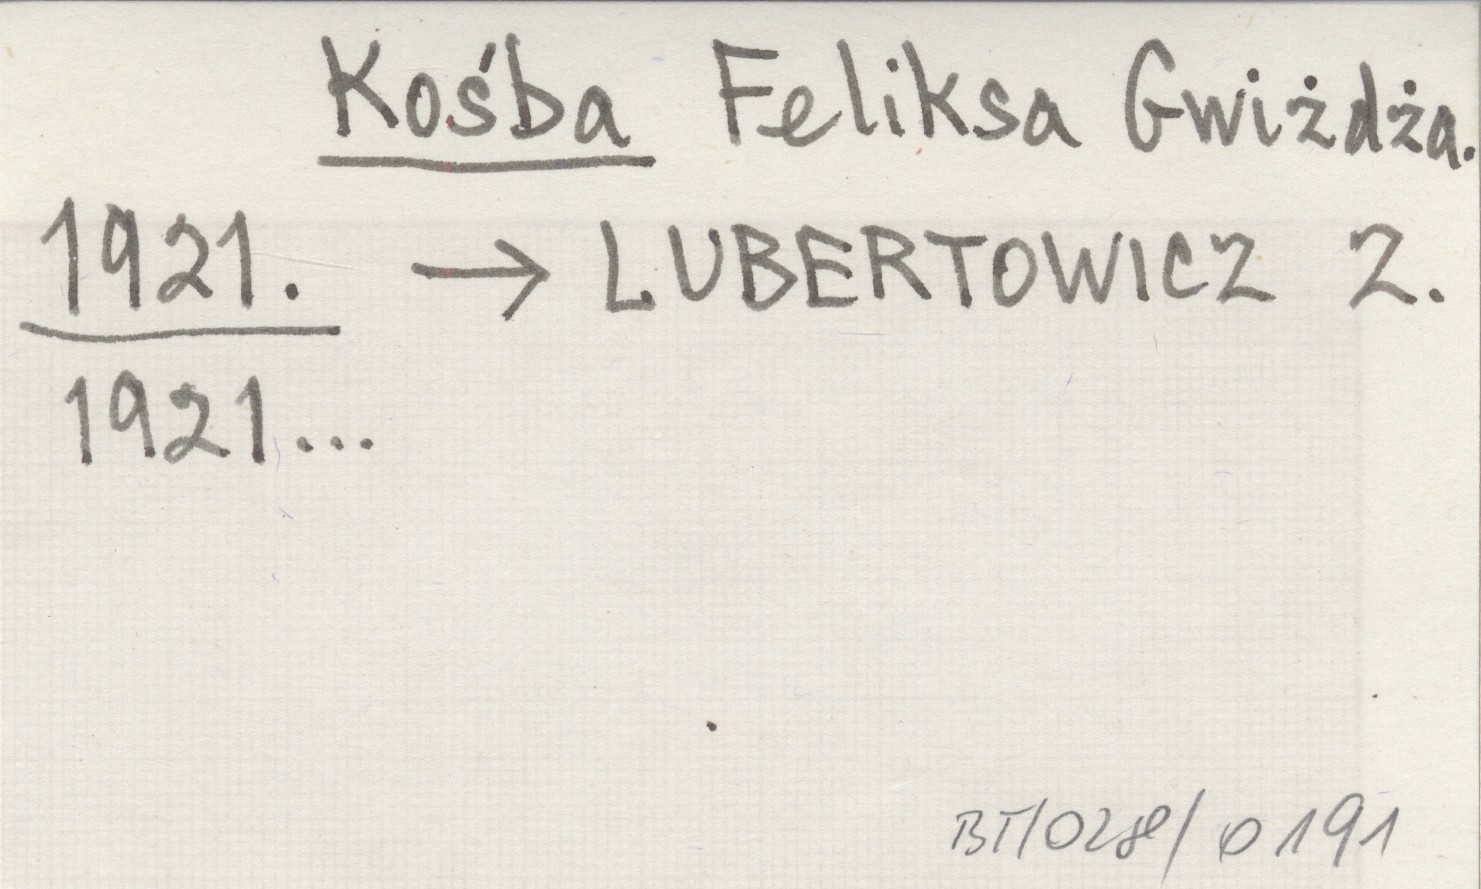 Kośba Feliksa Gwiżdża.
1921. → LUBERTOWICZ Z.
1921...
BT/028/0191